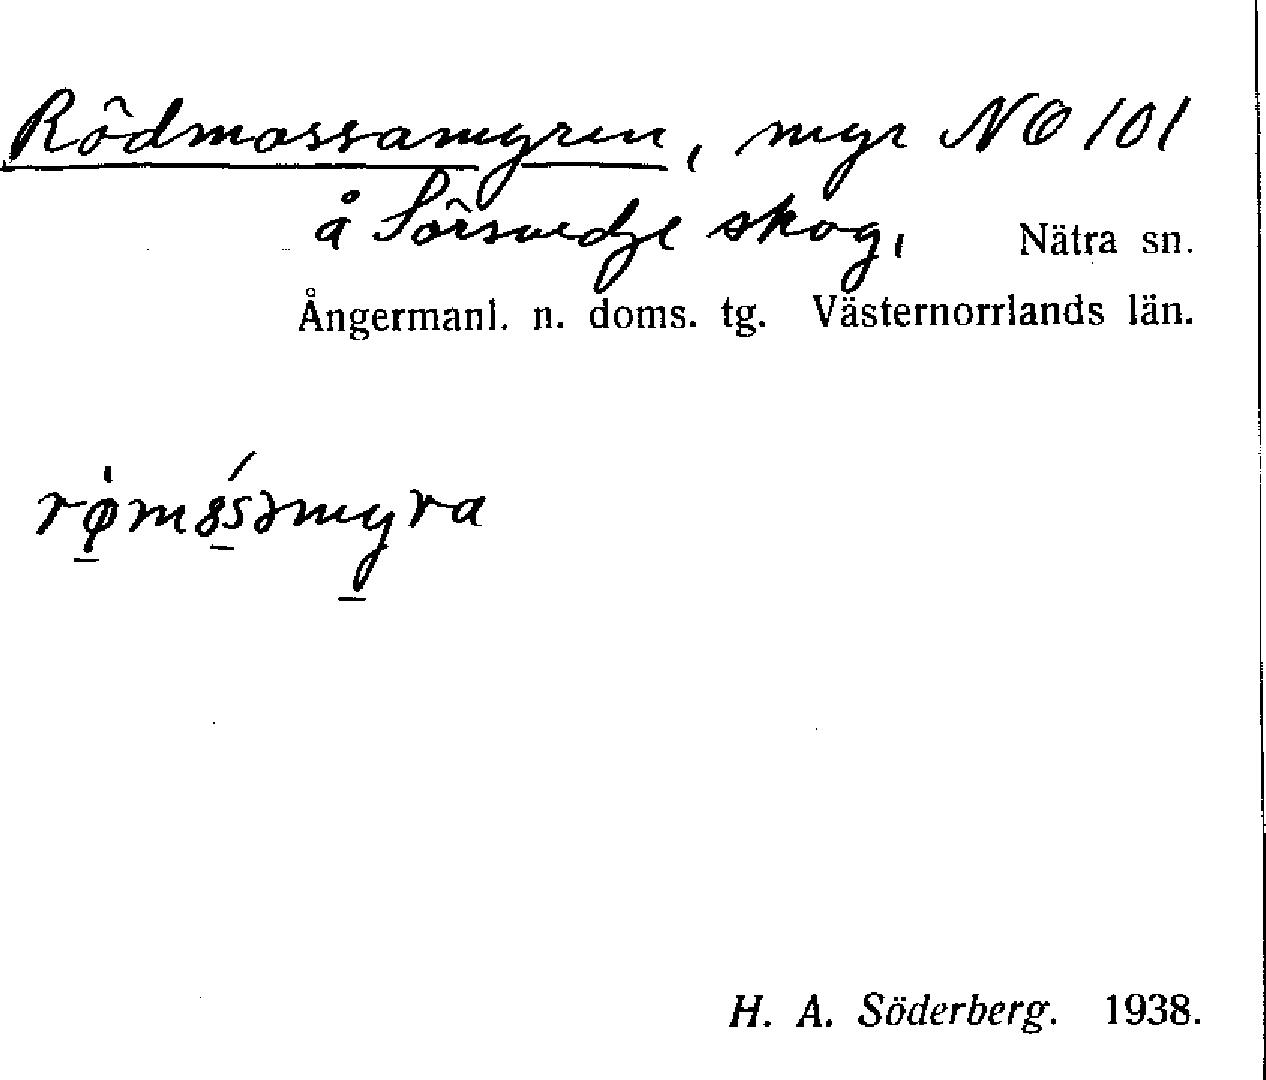 Rödmossamyren, myr NO 101
å Sörsvedje skog, Nätra sn.
Ångermanl. n. doms. tg. Västernorrlands län.
H. A. Söderberg. 1938.